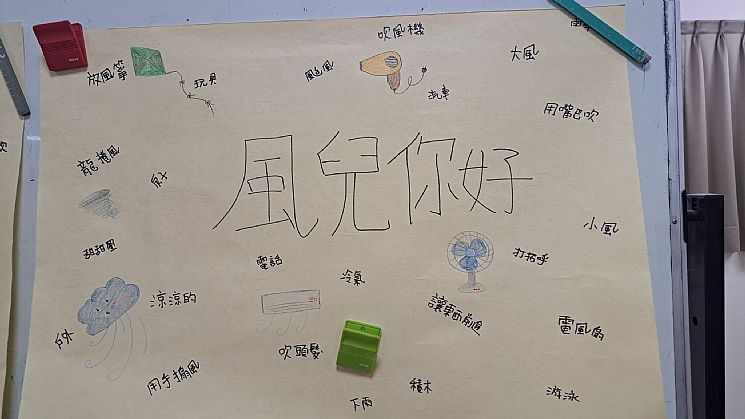 吹風機
大風
放風箏
玩具
汽車
用嘴巴吹
龍捲風
風兒你好
小風
甜甜圈
電話
冷氣
打招呼
涼涼的
讓東西前進
戶外
電風扇
吹頭髮
用手搧風
積木
游泳
下雨